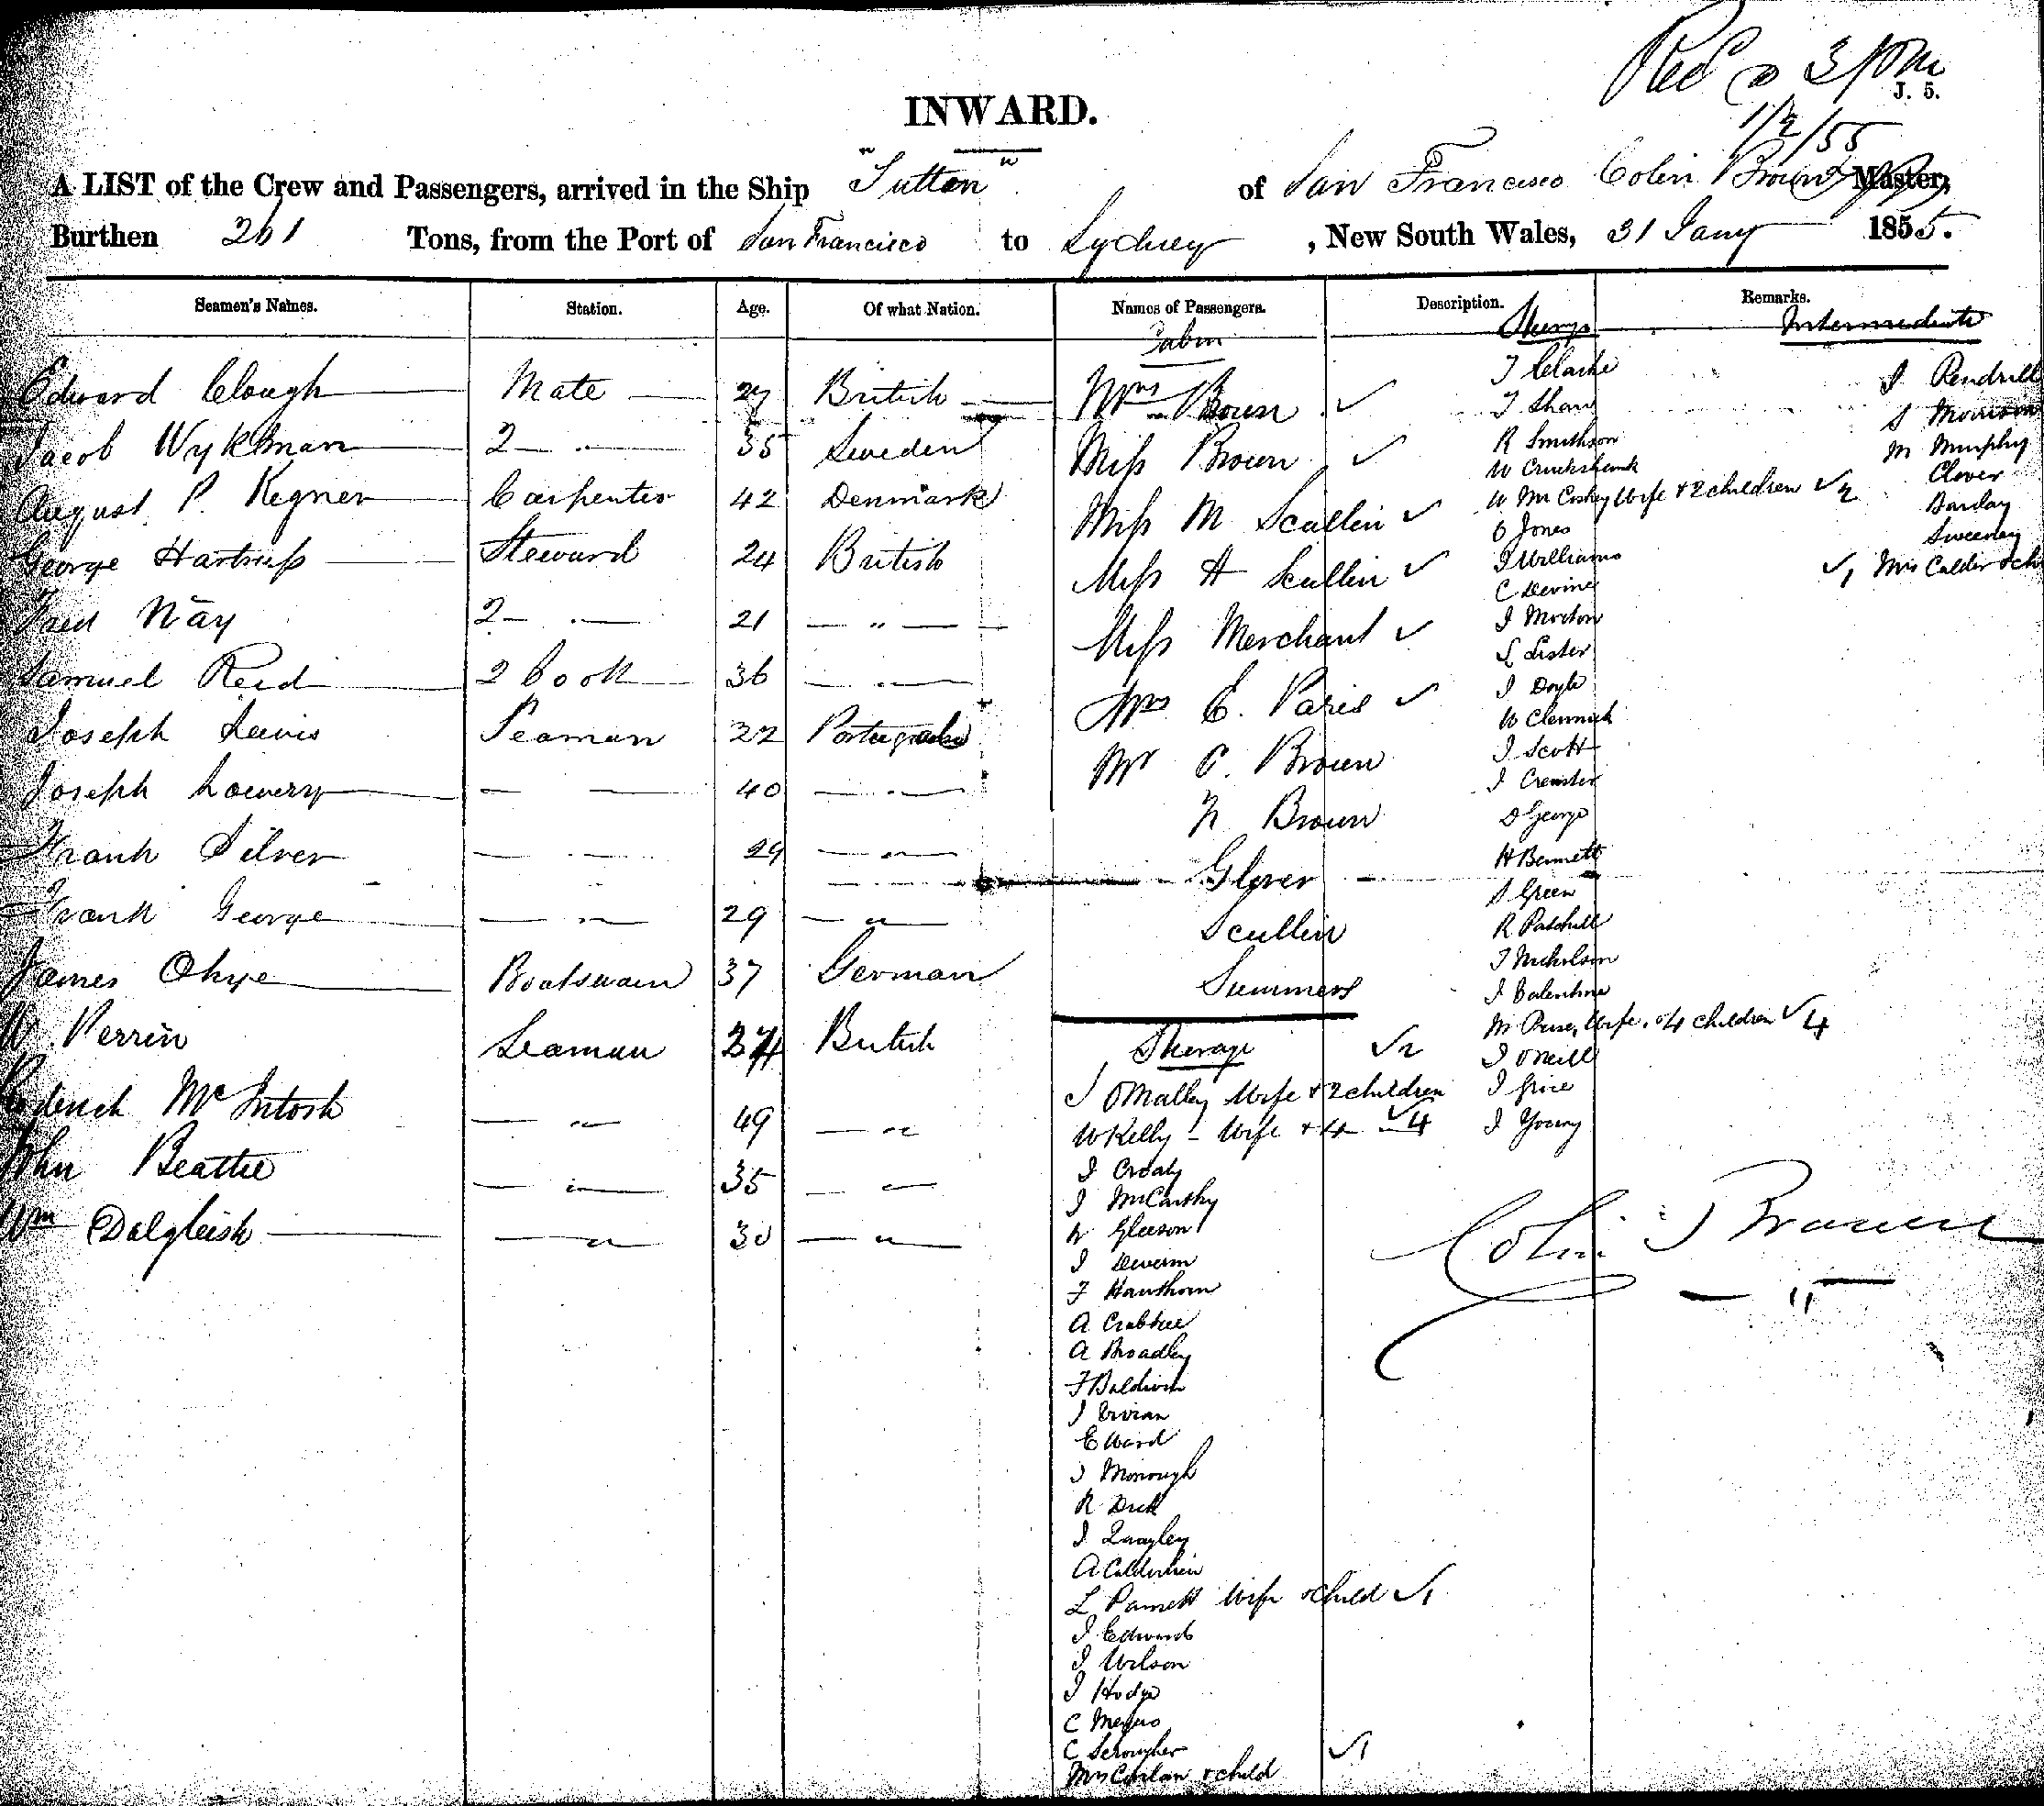 Recd @ 3 pm
J. 5.
1/2/55
INWARD.
A LIST of the Crew and Passengers, arrived in the Ship "Sutton" of San Francisco Colin Brown Master,
Burthen 261 Tons, from the Port of San Francisco to Sydney, New South Wales, 31 Jany 1855.
Seamen's Names. Station. Age. Of what Nation. Names of Passengers. Description. Remarks.
Edward Clough Mate 27 British
Jacob Wykman 2 — " — 35 Sweden
August P. Regner Carpenter 42 Denmark
George Hartrup Steward 24 British
Fred Nay 2 — " — 21 — " —
Samuel Reid 2 Cook 36 — " —
Joseph Lewis Seaman 22 Portugal
Joseph Lowery — — 40 — " —
Frank Silver — " — 29 — " —
Frank George — " — 29 — " —
James Okye Boatswain 37 German
W. Perrin Seaman 34 British
Roderick McIntosh — " — 49 — " —
John Beattie — " — 35 — " —
Wm Dalgleish — " — 30 — " —
Cabin
Mrs Brown ✓
Miss Brown ✓
Miss M Scullin ✓
Miss A Scullin ✓
Miss Merchant ✓
Mrs E. Paris ✓
Mr C. Brown
N Brown
Glover
Scullin
Summers
Steerage ✓2
J OMalley Wife & 2 children
W Kelly - Wife & 4 — ✓4
J Crealy
J McCarthy
W Gleeson
J
F Hawthorn
A Crabtree
A Broadley
F Baldwick
J Vivian
E Ward
J Monough
R Dick
J Quayley
A
L Parnett Wife & Child ✓1
J Edwards
J Wilson
J Hodge
C
C
Mrs & child ✓1
Steerage
T Clarke
T Shaw
R Smithson
W Cruickshank
W McCoskey Wife & 2 children ✓2
O Jones
J Williams
C Devine
J Morton
S Lister
J Doyle
W
J Scott
J
D George
H Bennett
S Green
R
T Nicholson
J Valentine
M Wife & 4 children ✓4
J ONeill
J Grice
J Young
Intermediate
J Pendrill
S Morrison
M Murphy
Clover
Barclay
Sweeney
✓1 Mrs Calder & ch
Colin J Brown
— " —